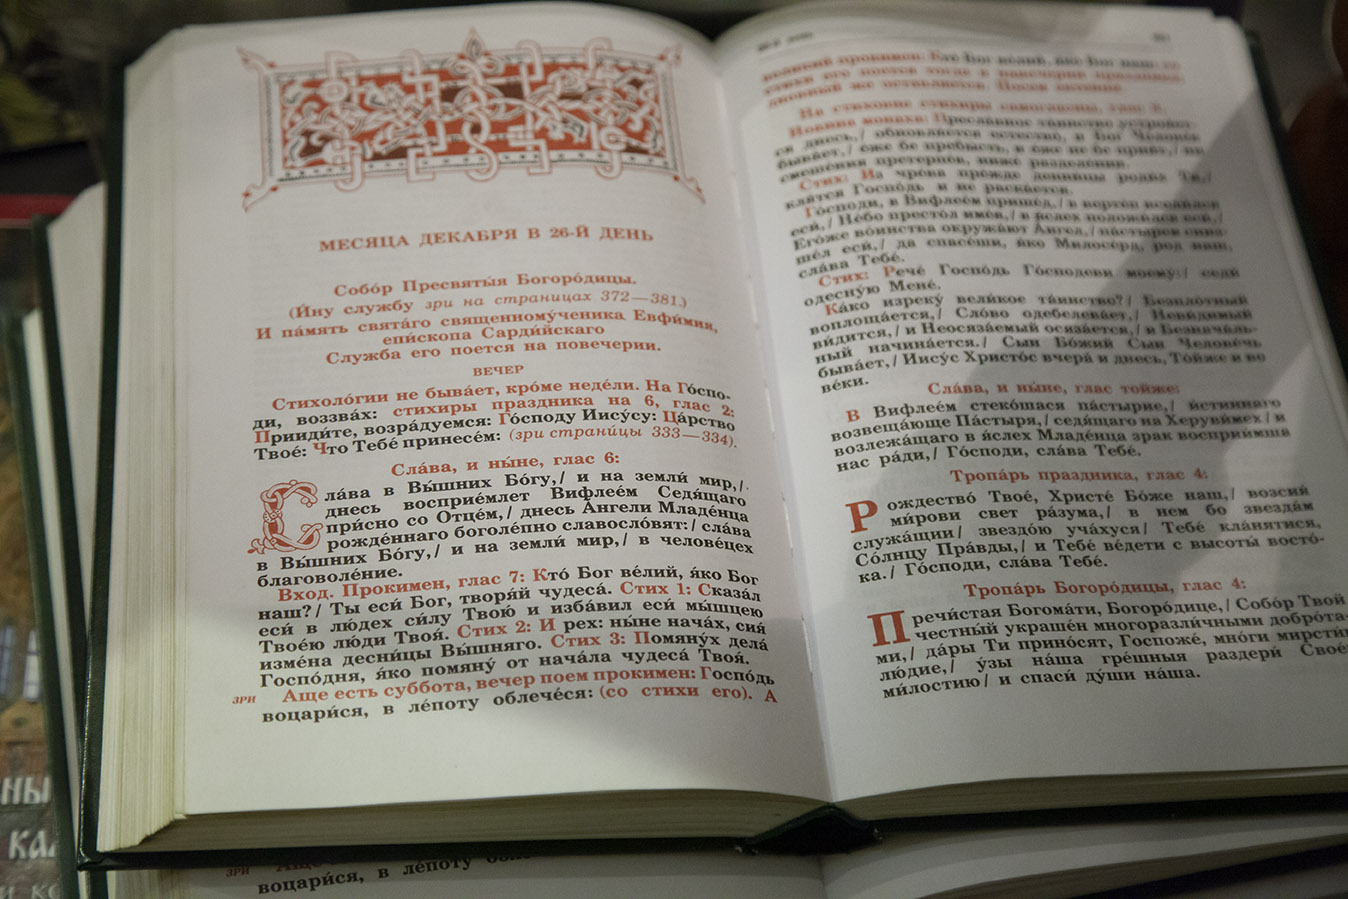 МЕСЯЦА ДЕКАБРЯ В 26-Й ДЕНЬ
Собо́р Пресвяты́я Богоро́дицы.
(И́ну службу зри на страницах 372—381.)
И па́мять свята́го священному́ченика Евфи́мия,
епи́скопа Сарди́йскаго
Служба его поется на повечерии.
ВЕЧЕР
Стихоло́гии не быва́ет, кро́ме неде́ли. На Го́спо-
ди, воззва́х: стихиры праздника на 6, глас 2:
Прииди́те, возра́дуемся: Го́споду Иису́су: Ца́рство
Твое́: Что Тебе́ принесе́м: (зри страни́цы 333—334).
Сла́ва, и ны́не, глас 6:
Сла́ва в Вы́шних Бо́гу,/ и на земли́ мир,/
днесь восприе́млет Вифлее́м Седя́щаго
при́сно со Отце́м,/ днесь А́нгели Младе́нца
рожде́ннаго боголе́пно славосло́вят:/ сла́ва
в Вы́шних Бо́гу,/ и на земли́ мир,/ в челове́цех
благоволе́ние.
Вход. Проки́мен, глас 7: Кто́ Бог ве́лий, я́ко Бог
наш?/ Ты еси́ Бог, творя́й чудеса́. Стих 1: Сказа́л
еси́ в лю́дех си́лу Твою́ и изба́вил еси́ мы́шцею
Твое́ю лю́ди Твоя́. Стих 2: И рех: ны́не нача́х, сия́
изме́на десни́цы Вы́шняго. Стих 3: Помяну́х дела́
Госпо́дня, я́ко помяну́ от нача́ла чудеса́ Твоя́.
зри Аще есть суббо́та, ве́чер поем проки́мен: Госпо́дь
воцари́ся, в ле́поту облече́ся: (со стихи́ его). А
вели́кий проки́мен: Кто Бог ве́лий, я́ко Бог наш: со
стихи его поется тогда в навечерии праздника,
дневный же оставляется. Посем ектение.
На стиховне стихиры самогласны, глас 8.
Иоанна монаха: Пресла́вное та́инство устроя́ет-
ся днесь,/ обновля́ется естество, и Бог Челове́к
быва́ет,/ е́же бе пребы́сть, и е́же не бе прия́т,/ ни
смеше́ния претерпе́в, ниже́ разделе́ния.
Стих: Из чре́ва пре́жде денни́цы роди́х Тя,/
кля́тся Госпо́дь и не раска́ется.
Го́споди, в Вифлее́м прише́д,/ в верте́п всели́лся
еси́,/ Не́бо престо́л име́я,/ в я́слех положи́лся еси́,/
Его́же во́инства окружа́ют А́нгел,/ па́стырем снис-
ше́л еси́,/ да спасе́ши, я́ко Милосе́рд, род наш,
сла́ва Тебе́.
Стих: Рече́ Госпо́дь Го́сподеви моему́:/ седи́
одесну́ю Мене́.
Ка́ко изреку́ вели́кое та́инство?/ Безпло́тный
воплоща́ется,/ Сло́во одебелева́ет,/ Неви́димый
ви́дится,/ и Неосяза́емый осяза́ется,/ и Безнача́ль-
ный начина́ется./ Сын Бо́жий Сын Челове́чь
быва́ет,/ Иису́с Христо́с вчера́ и днесь, То́йже и во
ве́ки.
Сла́ва, и ны́не, глас то́йже:
В Вифлее́м стеко́шася па́стырие,/ и́стиннаго
возвеща́юще Па́стыря,/ седя́щаго на Херуви́мех/ и
возлежа́щаго в я́слех Младе́нца зрак восприи́мша
нас ра́ди,/ Го́споди, сла́ва Тебе́.
Тропа́рь праздника, глас 4:
Рождество́ Твое́, Христе́ Бо́же наш,/ возсия́
ми́рови свет ра́зума,/ в нем бо звезда́м
служа́щии/ звездо́ю уча́хуся/ Тебе́ кла́нятися,
Со́лнцу Пра́вды,/ и Тебе́ ве́дети с высоты́ восто́-
ка./ Го́споди, сла́ва Тебе́.
Тропа́рь Богоро́дицы, глас 4:
Пречи́стая Богома́ти, Богоро́дице,/ Собо́р Твой
честны́й украше́н многоразли́чными доброта́-
ми,/ да́ры Ти прино́сят, Госпоже́, мно́ги мирсти́и
лю́дие,/ у́зы на́ша гре́шныя раздери́ Свое́ю
ми́лостию/ и спаси́ ду́ши на́ша.
зри
воцари́ся, в ле́поту
НЫ
КА